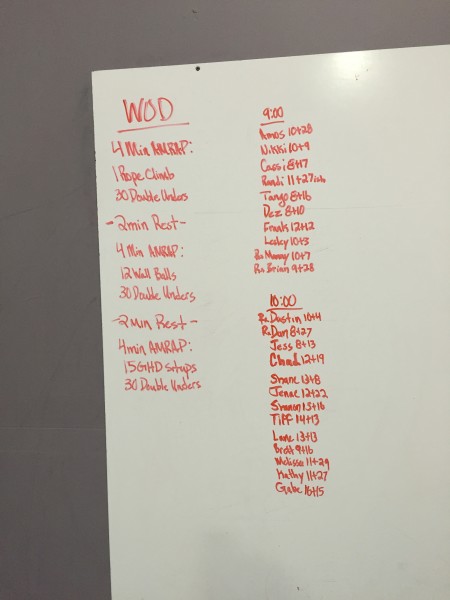 WOD
4 Min AMRAP:
1 Rope Climb
30 Double Unders
-2min Rest-
4 Min AMRAP:
12 Wall Balls
30 Double Unders
-2 Min Rest-
4min AMRAP:
15 GHD situps
30 Double Unders
9:00
Amos 10+28
Nikki 10+9
Cassi 8+17
Randi 11+27
Tango 8+16
Daz 8+10
Frank 12+12
Lesky 10+3
Rx Manny 10+7
Rx Brian 9+28
10:00
Rx Dustin 10+4
Rx Dan 8+27
Jess 8+13
Chad 12+19
Shane 13+8
Jenae 12+22
Shanon 15+16
Tiff 14+13
Lane 13+13
Brett 9+16
Melissa 11+29
Kathy 11+27
Gabe 16+15